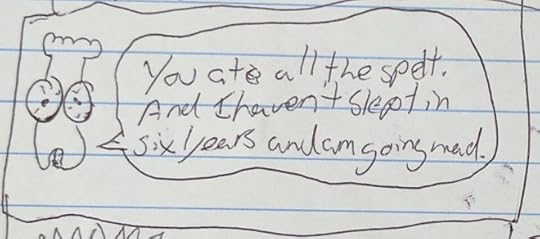 You ate all the spelt.
And I haven't slept in
six years and am going mad.